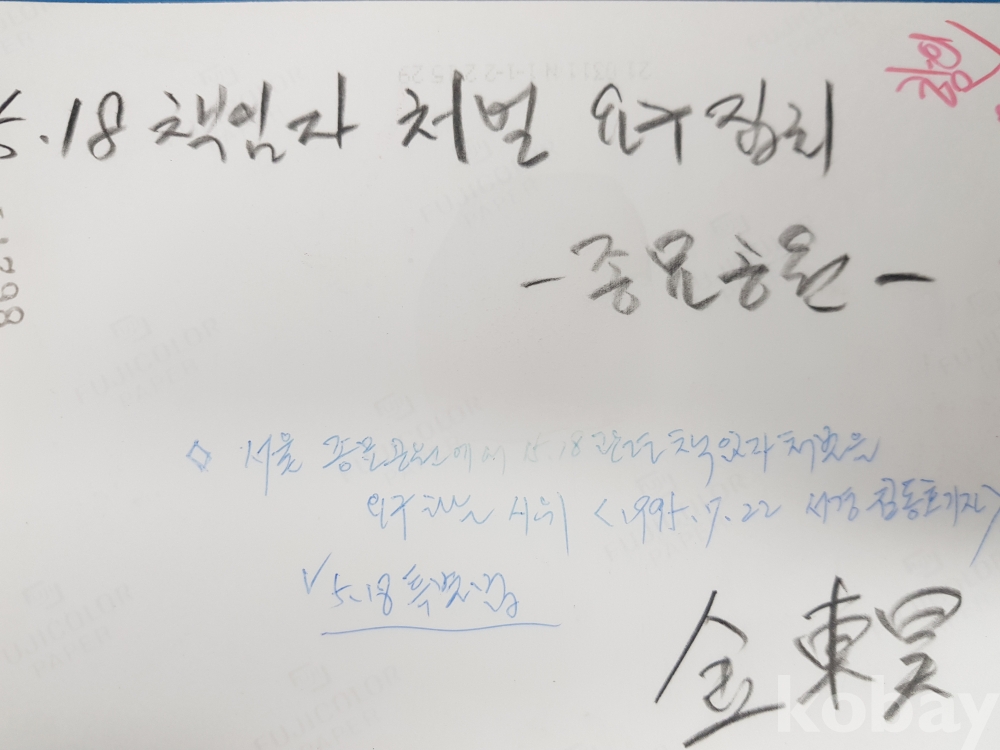 5.18 책임자 처벌 요구 집회
- 종묘공원 -
◇ 서울 종묘공원에서 5.18 관련 책임자 처벌을
요구하는 시위 <1995.7.22 서경 김동호기자>
√ 5.18 특별법
金東昊
kobay